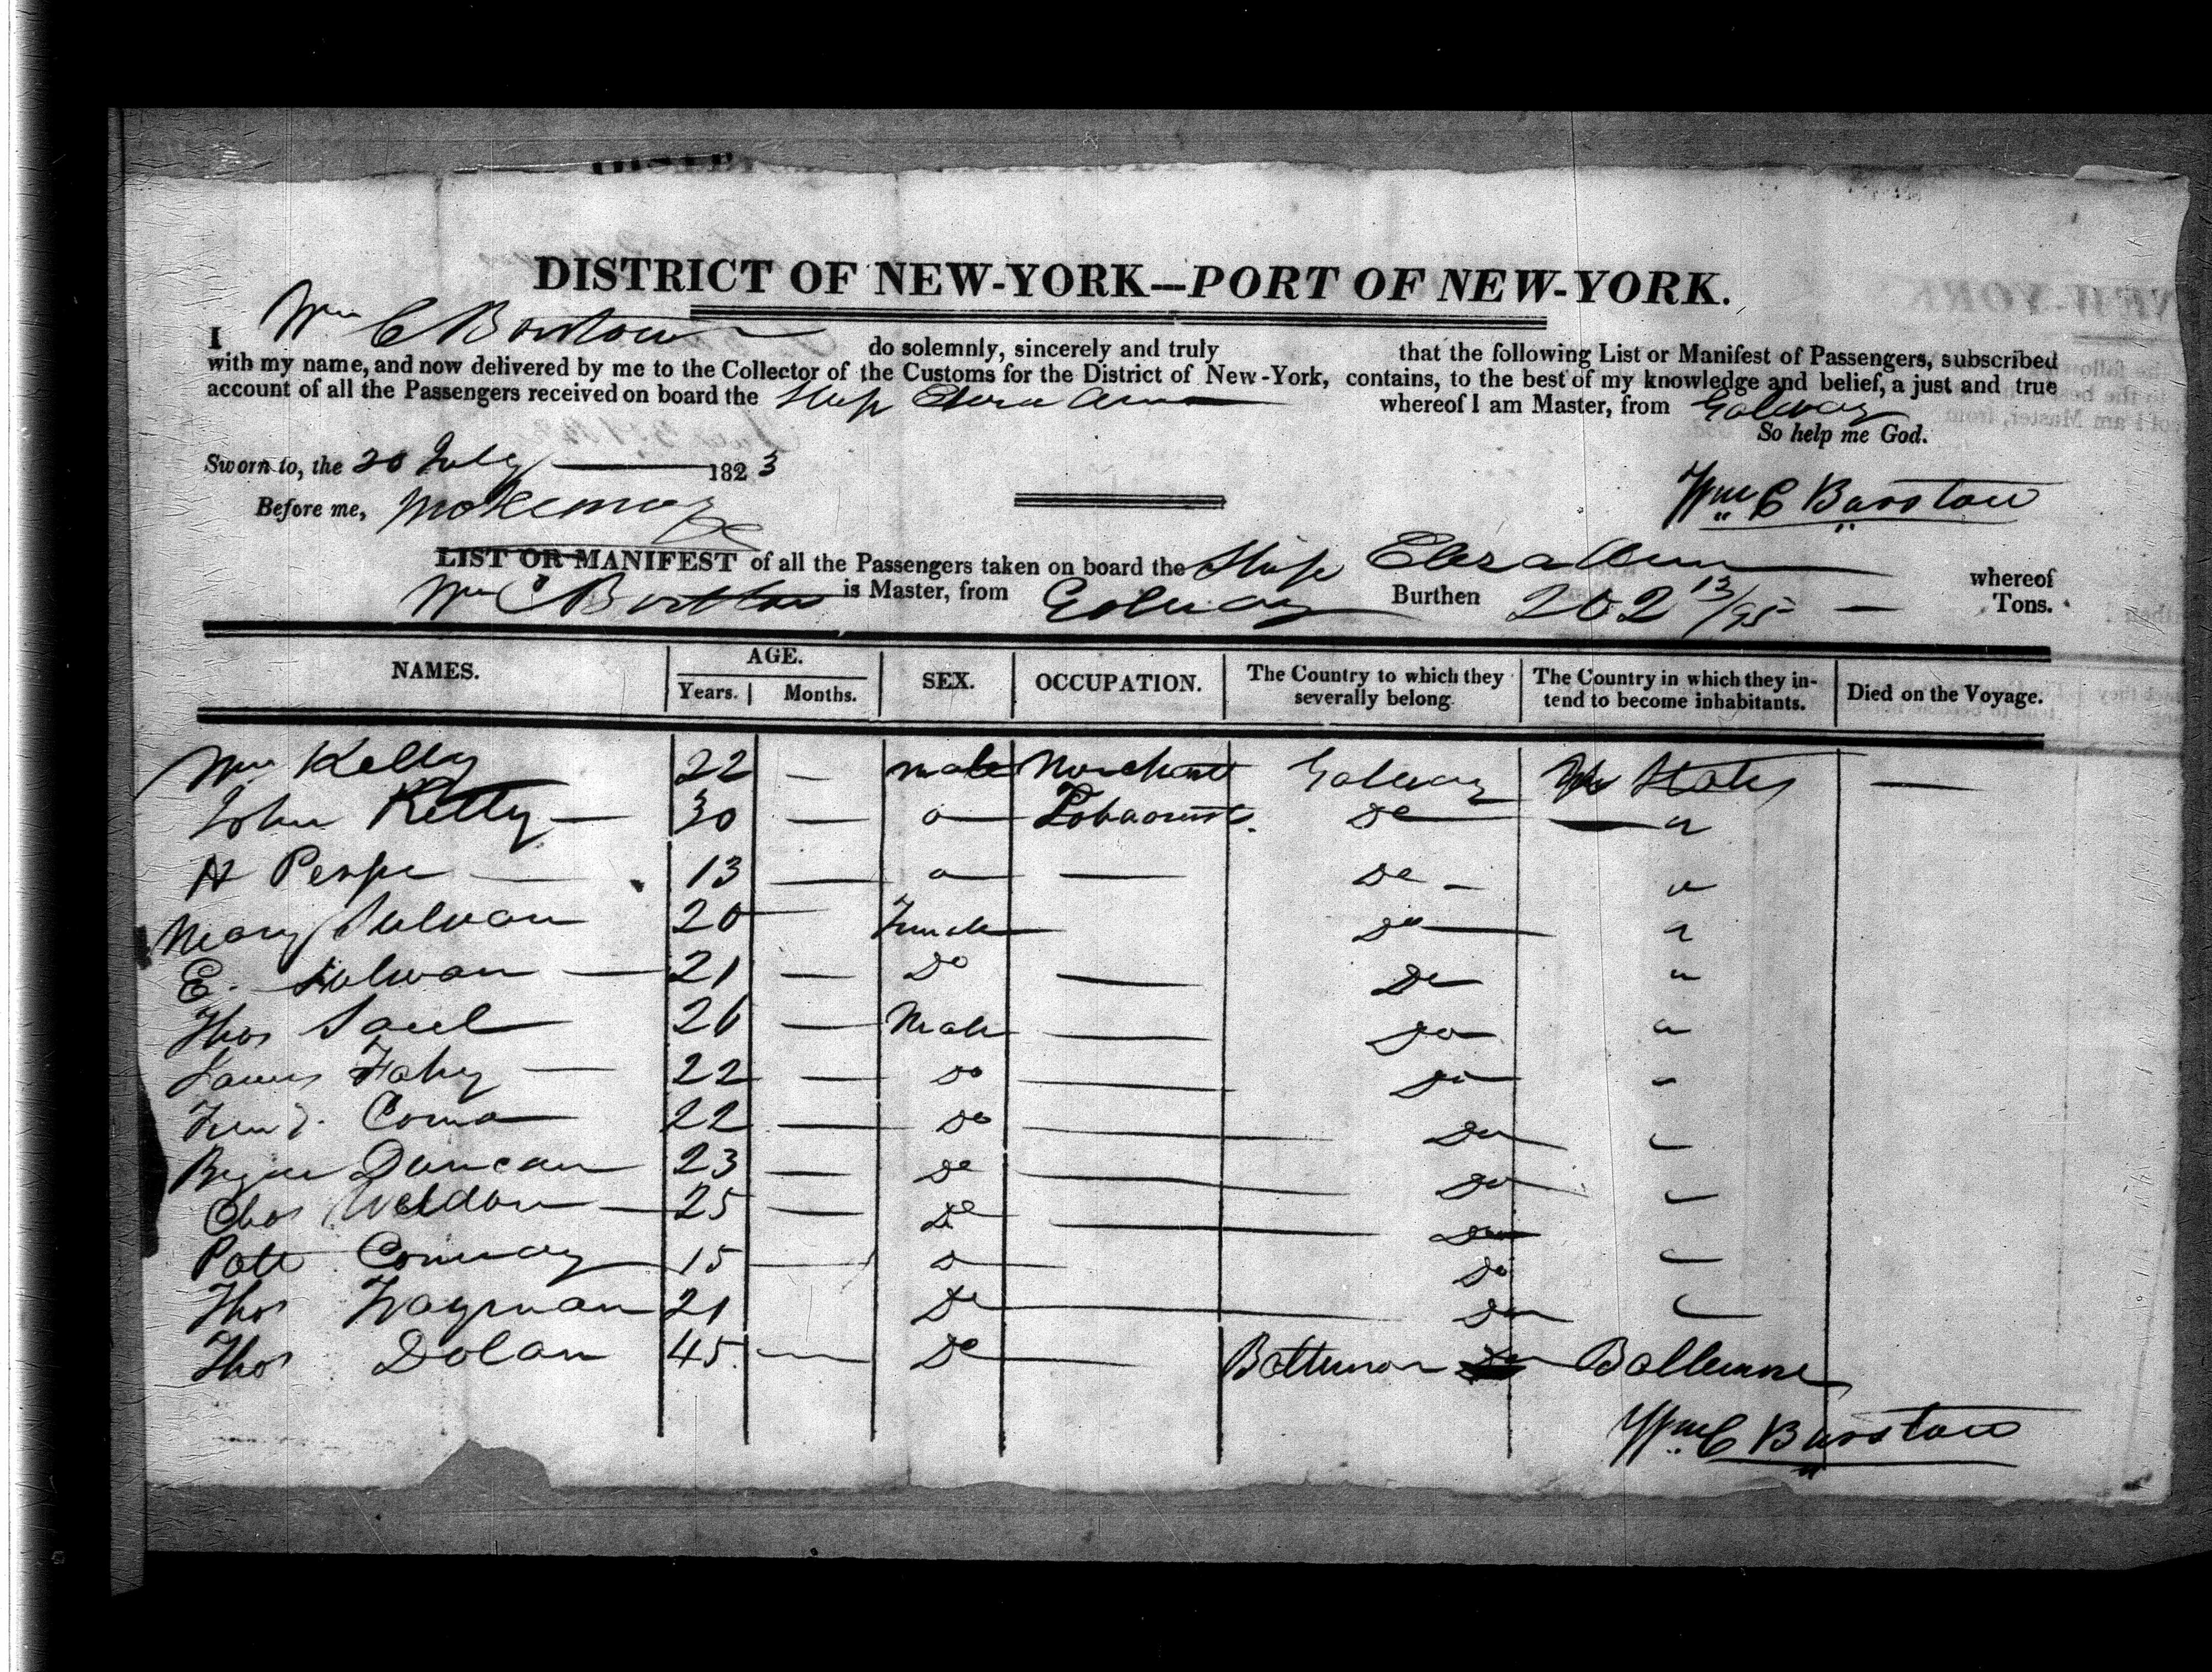 DISTRICT OF NEW-YORK—PORT OF NEW-YORK.
I Wm C Barstow do solemnly, sincerely and truly that the following List or Manifest of Passengers, subscribed
with my name, and now delivered by me to the Collector of the Customs for the District of New-York, contains, to the best of my knowledge and belief, a just and true
account of all the Passengers received on board the Ship Eliza Ann whereof I am Master, from Galway
So help me God.
Sworn to, the 20 July 1823
Wm C Barstow
Before me,
LIST OR MANIFEST of all the Passengers taken on board the Ship Eliza Ann whereof
Wm C Barstow is Master, from Galway Burthen 202 13/95 Tons.
NAMES. AGE. SEX. OCCUPATION. The Country to which they severally belong. The Country in which they intend to become inhabitants. Died on the Voyage.
Years. Months.
Wm Kelly 22 — male Merchant Galway States —
John Kelly — 30 — Do Tobaconist. Do — "
H — 13 — Do — Do — "
Mary Sulvan 20 — Female — Do — "
E. Sulvan — 21 — Do — Do "
Thos Saul 26 — Male — Do "
James Fahy — 22 — Do — Do "
Coma 22 — Do — Do "
Duncan 23 — Do — Do "
Chas Weldon — 25 — Do — Do "
Patt Conway 15 — Do — Do "
Thos Wayman 21 Do — Do "
Thos Dolan 45 — Do — Baltimore Baltimore
Wm C Barstow